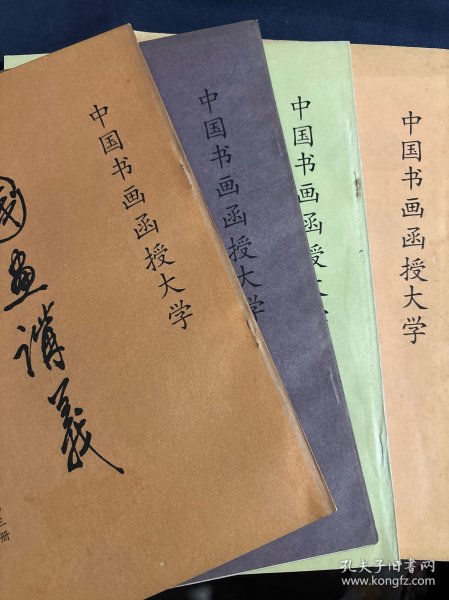 国画讲義
中国书画函授大学
三册
中国书画函授大学
中国书画函授大学
中国书画函授大学
孔夫子旧书网
www.kongfz.com